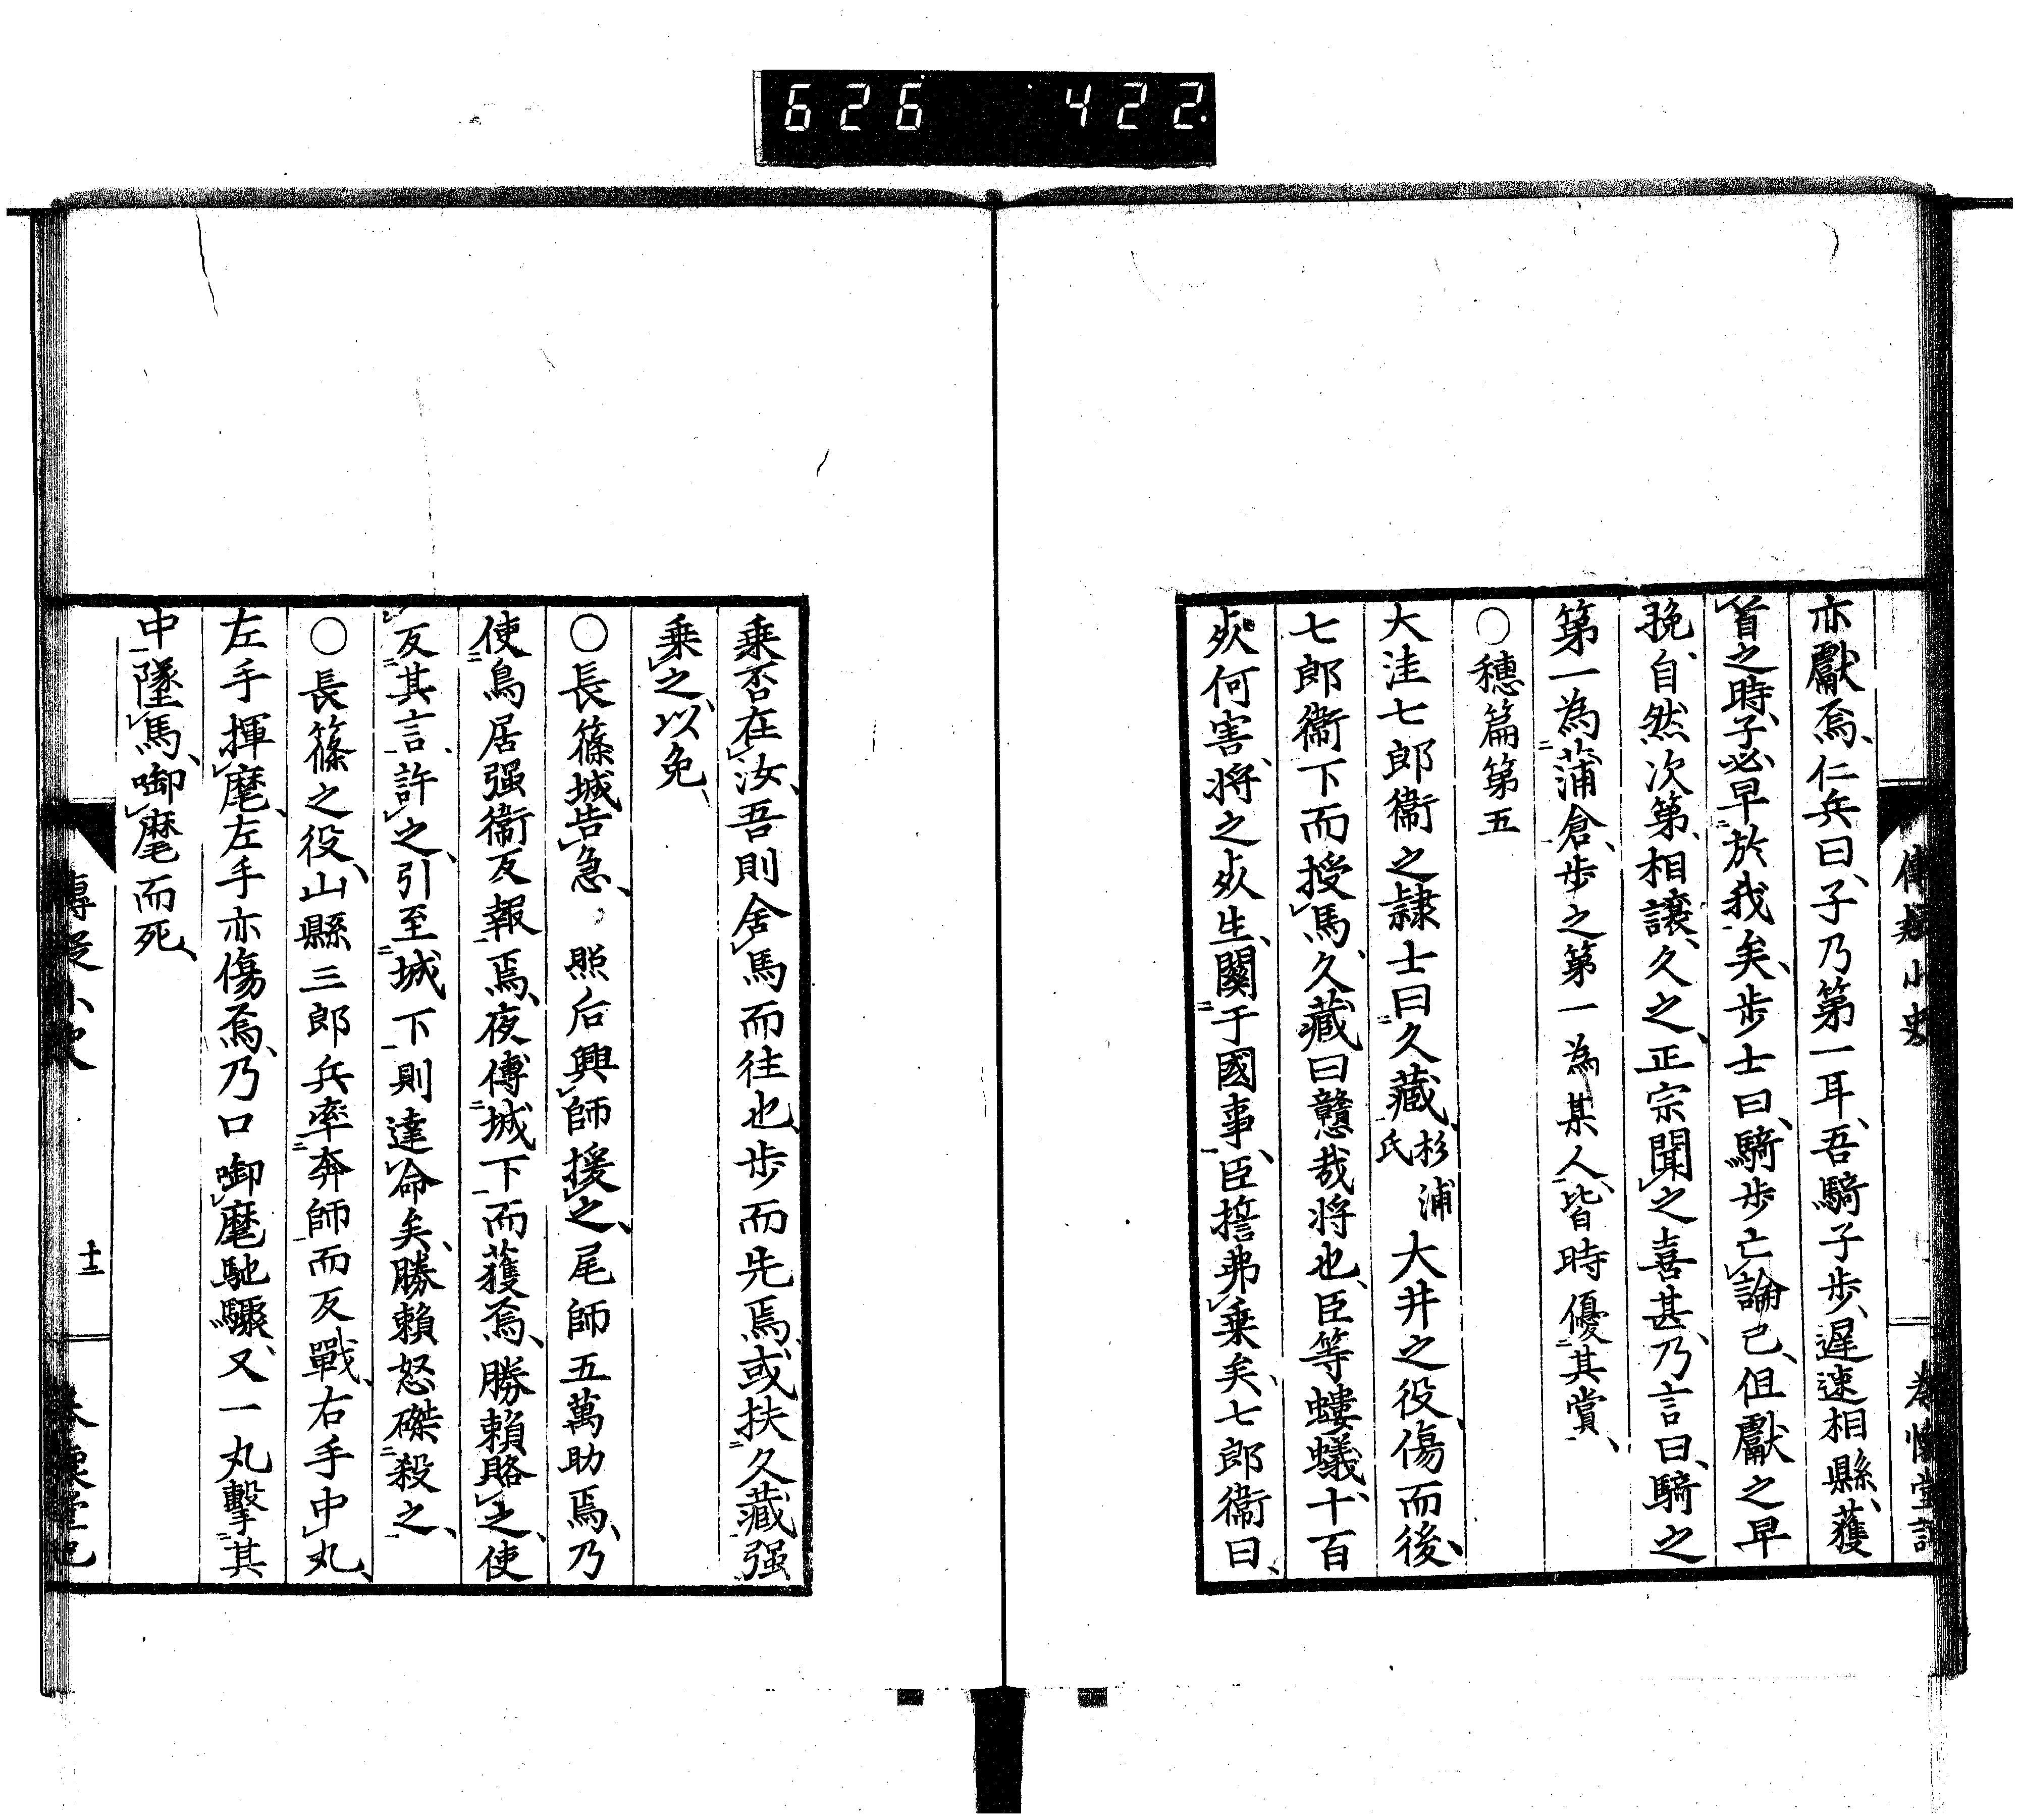 626 422
亦獻焉、仁兵曰、子乃第一耳、吾騎子歩、遲速相縣、獲
首之時、子必早於我矣、歩士曰、騎歩亡論已、但獻之早
晩、自然次第、相讓、久之、正宗聞之喜甚、乃言曰、騎之
第一為蒲倉、歩之第一為某人、皆時優其賞、
〇穗篇第五
大洼七郎衞之隷士曰久藏、杉浦氏大井之役、傷而後、
七郎衞下而授馬、久藏曰戇哉將也、臣等螻蟻、十百
死何害、將之死生、關于國事、臣誓弗乗矣、七郎衞曰、
乗否在汝、吾則舍馬而往也、歩而先焉、或扶久藏强
乗之、以免、
〇長篠城告急、照后興師援之、尾師五萬助焉、乃
使鳥居强衞反報焉、夜傅城下而獲焉、勝賴賂之、使
反其言、許之、引至城下則達命矣、勝賴怒磔殺之、
〇長篠之役、山縣三郎兵率奔師而反戰、右手中丸、
左手揮麾、左手亦傷焉、乃口啣麾馳驟、又一丸擊其
中墜馬、啣麾而死、
十二